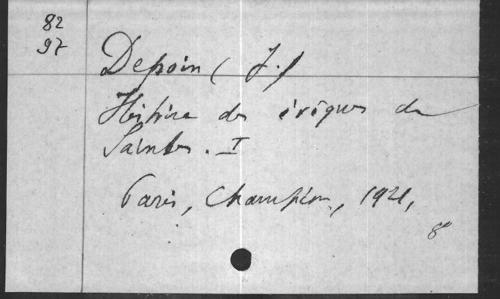 82
97
Depoin (J.)
Histoire des évêques de
Saintes. I
Paris, Champion, 1921,
8°